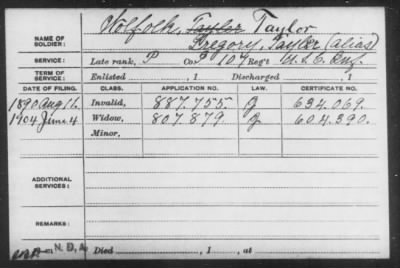 Wolfolk, Taylor Taylor
NAME OF SOLDIER: Gregory, Taylor (alias)
SERVICE: Late rank, P Co. 107 Reg't U.S.C. Inf.
TERM OF SERVICE: Enlisted , 1 Discharged , 1
DATE OF FILING. CLASS. APPLICATION NO. LAW. CERTIFICATE NO.
1890 Aug 11. Invalid, 887.755 J 634.069.
1904 June 4 Widow, 807.879. J 604.390.
Minor,
ADDITIONAL SERVICES:
REMARKS:
N.D.A. Died , 1 , at